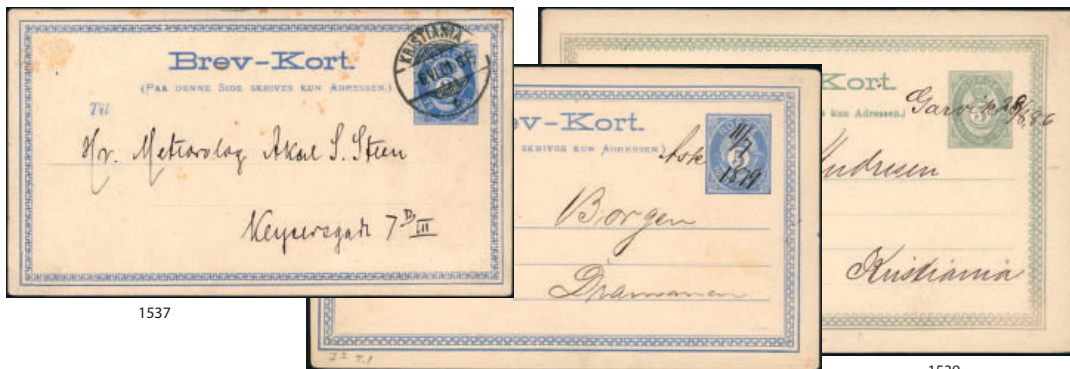 Brev-Kort.
(PAA DENNE SIDE SKRIVES KUN ADRESSEN.)
KRISTIANIA
Til
Hr. Meteorolog Aksel S. Steen
Keysersgade 7 B III
1537
v-Kort.
SKRIVES KUN ADRESSEN.)
Ask 11/7 1879
3
Borgen
Drammen
Kort.
kun Adressen.)
3
Kristiania